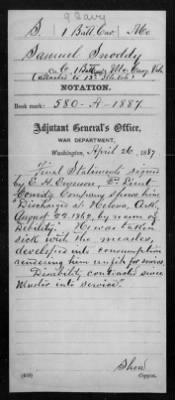 9 Cavy
S | 1 Batt. Cav | Mo
Samuel Snoddy
Co. C, 1 Batt Mo. Cavy Vols
NOTATION.
Book mark: 580-A-1887
Adjutant General's Office,
WAR DEPARTMENT,
Washington, April 26, 1887
Final Statements signed
by 2" Lieut
Comdg Company shows him
"Discharged at Helena, Ark,
August 22, 1862, by reason of
debility." "He was taken
sick with the measles,
developed into consumption
rendering him unfit for service.
Disability contracted since
Muster into service."
Copyist.